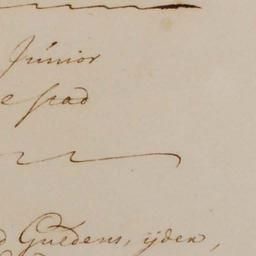 Júnior
e stad
d Guedens, ijder,